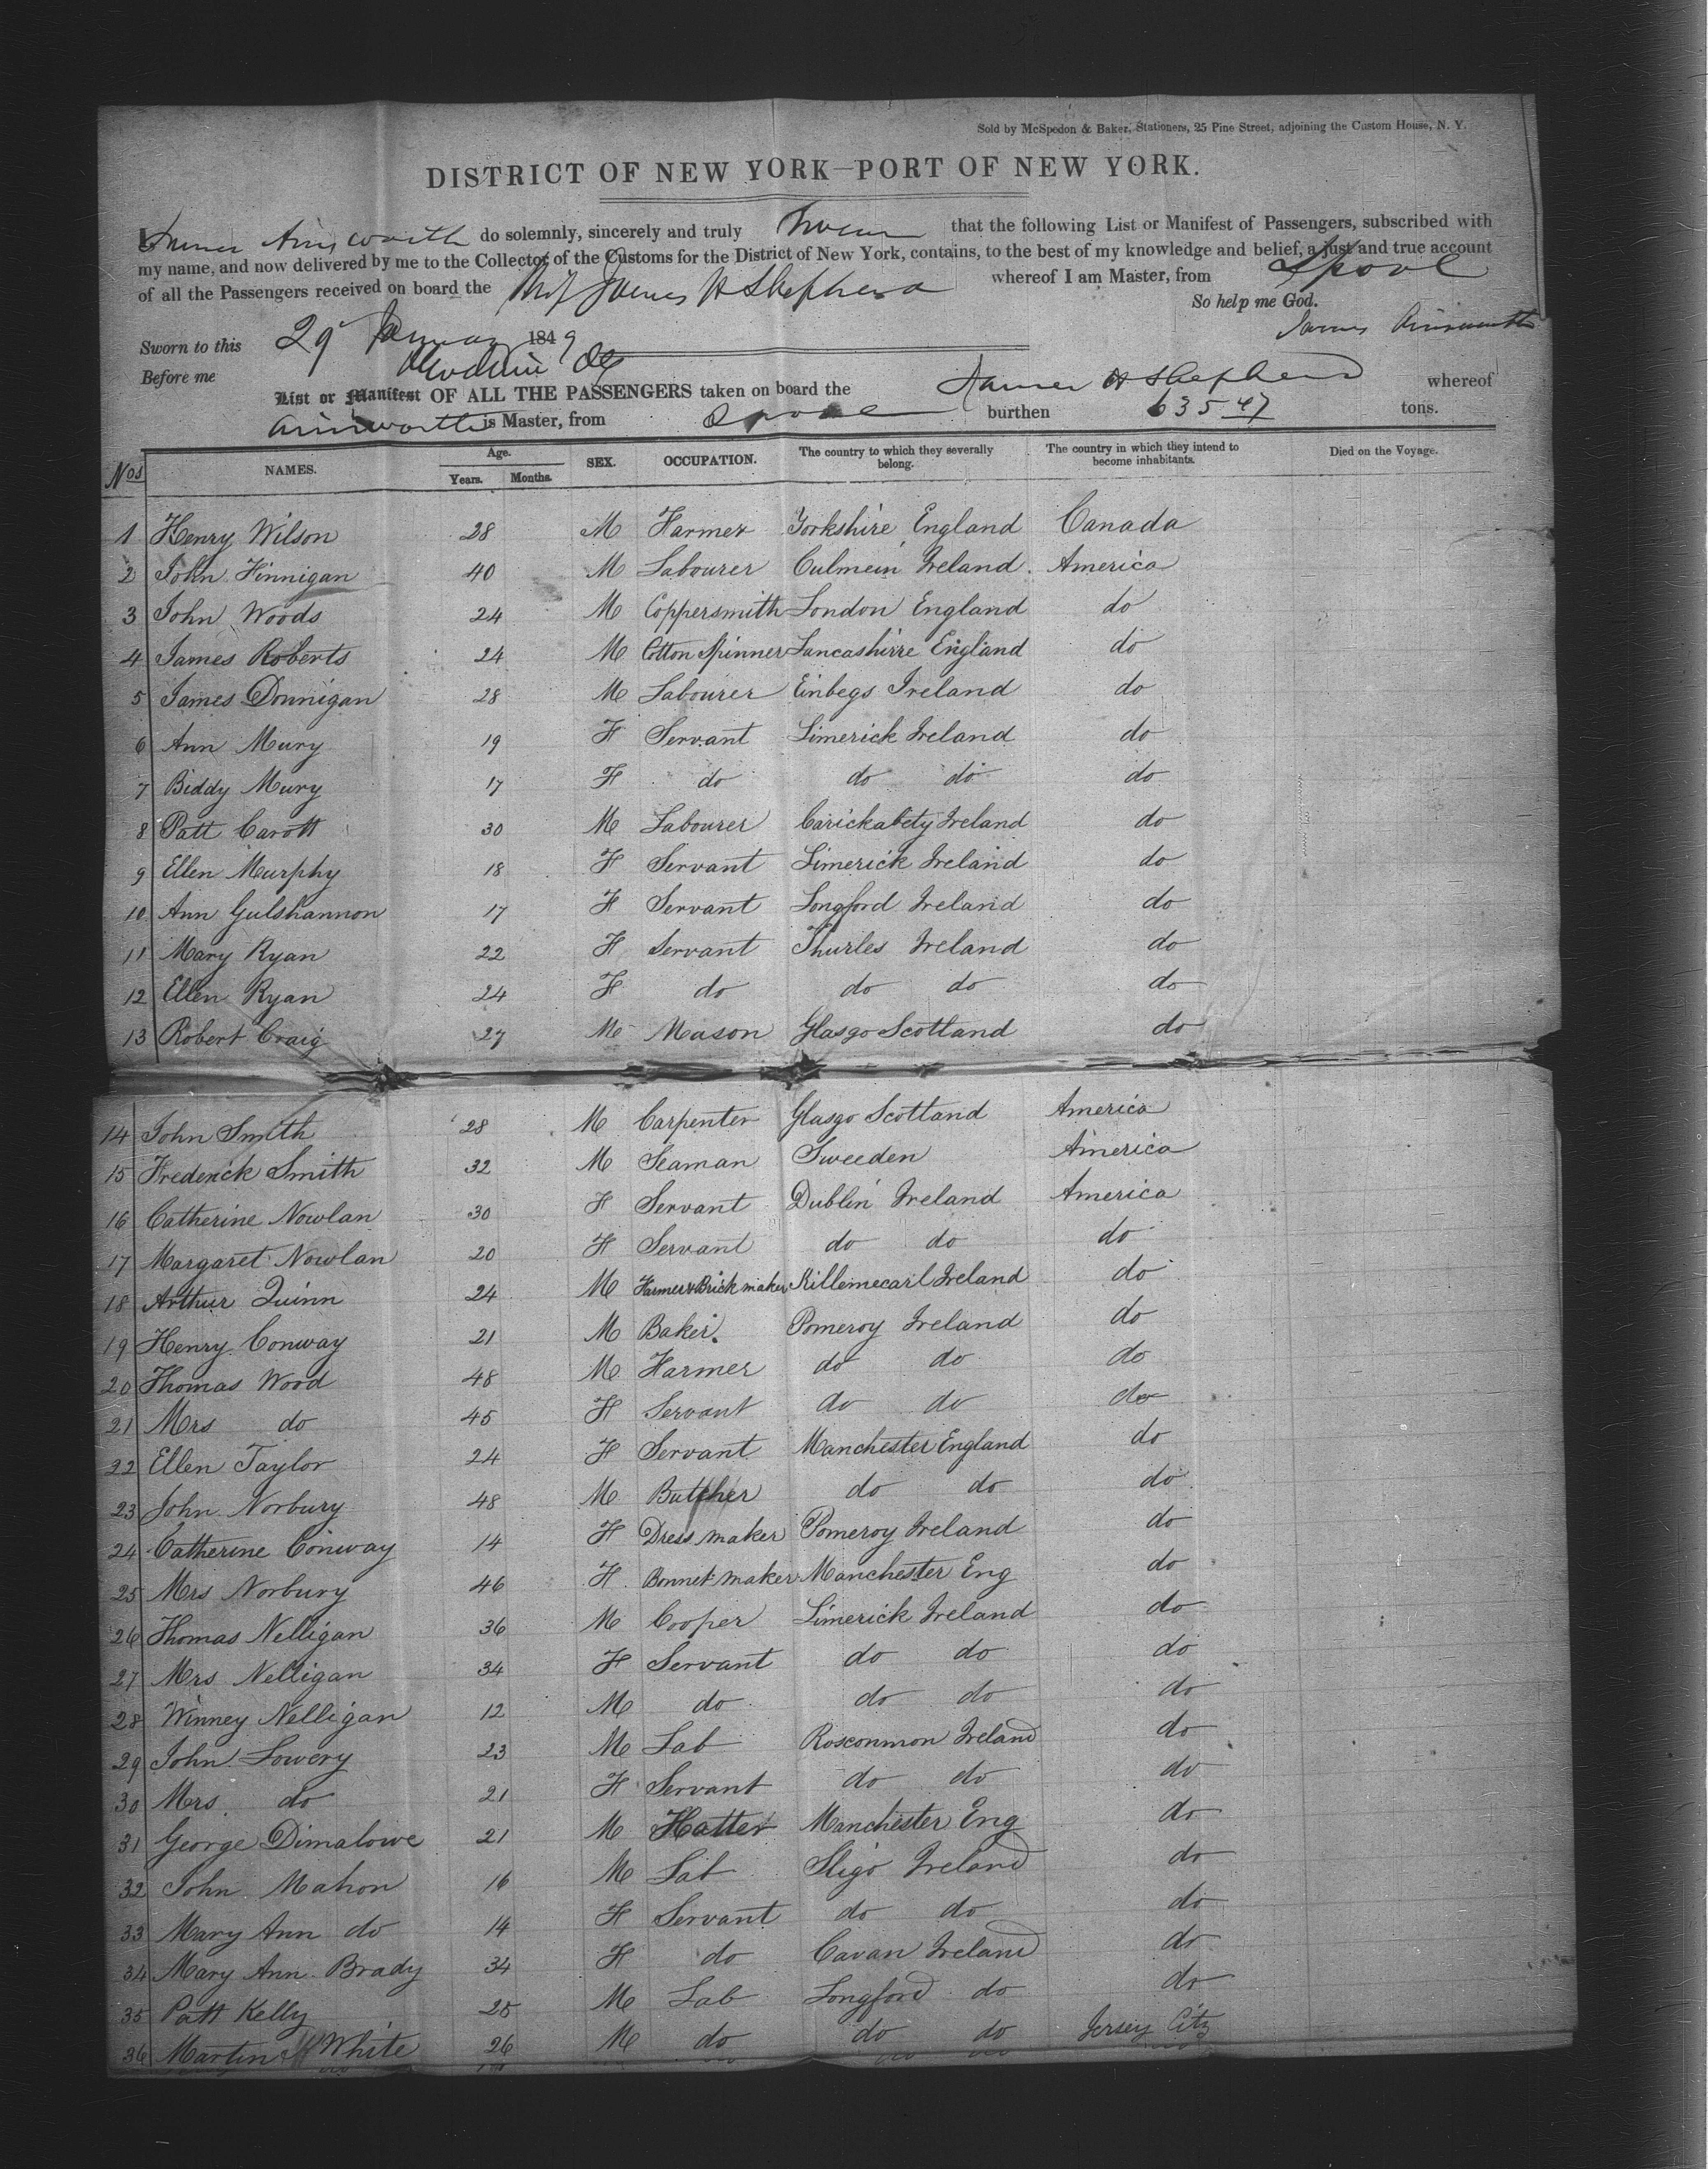 Sold by McSpedon & Baker, Stationers, 25 Pine Street, adjoining the Custom House, N. Y.
DISTRICT OF NEW YORK—PORT OF NEW YORK.
I James Ainsworth do solemnly, sincerely and truly Swear that the following List or Manifest of Passengers, subscribed with
my name, and now delivered by me to the Collector of the Customs for the District of New York, contains, to the best of my knowledge and belief, a just and true account
of all the Passengers received on board the Ship James H Shepherd whereof I am Master, from Lpool
So help me God.
Sworn to this 29 January 1849 James Ainsworth
Before me
List or Manifest OF ALL THE PASSENGERS taken on board the James H Shepherd whereof
Ainsworth is Master, from Lpool burthen 635 47 tons.
Nos NAMES. Age. Years. Months. SEX. OCCUPATION. The country to which they severally belong. The country in which they intend to become inhabitants. Died on the Voyage.
1 Henry Wilson 28 M Farmer Yorkshire England Canada
2 John Finnigan 40 M Labourer Culmein Ireland. America
3 John Woods 24 M Coppersmith London England do
4 James Roberts 24 M Cotton Spinner Lancashirre England do
5 James Donnigan 28 M Labourer Einbegs Ireland do
6 Ann Mury 19 F Servant Limerick Ireland do
7 Biddy Mury 17 F do do do do
8 Patt Carott 30 M Labourer Carickabety Ireland do
9 Ellen Murphy 18 F Servant Limerick Ireland do
10 Ann Gulshannon 17 F Servant Longford Ireland do
11 Mary Ryan 22 F Servant Thurles Ireland do
12 Ellen Ryan 24 F do do do do
13 Robert Craig 27 M Mason Glasgo Scotland do
14 John Smith 28 M Carpenter Glasgo Scotland America
15 Frederick Smith 32 M Seaman Sweeden America
16 Catherine Nowlan 30 F Servant Dublin Ireland America
17 Margaret Nowlan 20 F Servant do do do
18 Arthur Quinn 24 M Farmer & Brick maker Killemecarl Ireland do
19 Henry Conway 21 M Baker. Pomeroy Ireland do
20 Thomas Wood 48 M Farmer do do do
21 Mrs do 45 F Servant do do do
22 Ellen Taylor 24 F Servant Manchester England do
23 John Norbury 48 M Butcher do do do
24 Catherine Conway 14 F Dress maker Pomeroy Ireland do
25 Mrs Norbury 46 F Bonnet maker Manchester Eng do
26 Thomas Nelligan 36 M Cooper Limerick Ireland do
27 Mrs Nelligan 34 F Servant do do do
28 Winney Nelligan 12 M do do do do
29 John Lowery 23 M Lab Rosconmon Ireland do
30 Mrs do 21 F Servant do do do
31 George Dimalowe 21 M Hatter Manchester Eng do
32 John Mahon 16 M Lab Sligo Ireland do
33 Mary Ann do 14 F Servant do do do
34 Mary Ann Brady 34 F do Cavan Ireland do
35 Patt Kelly 25 M Lab Longford do do
36 Martin White 26 M do do do Jersey City